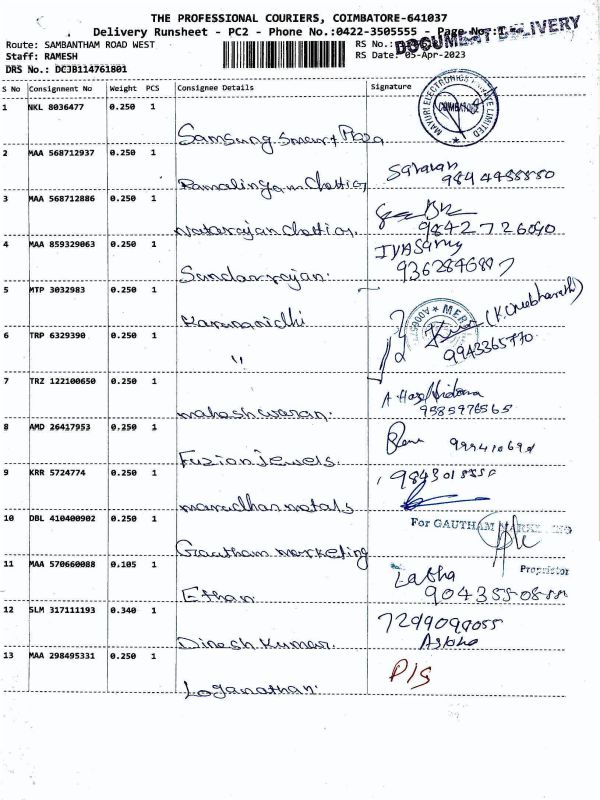 THE PROFESSIONAL COURIERS, COIMBATORE-641037
Delivery Runsheet - PC2 - Phone No.:0422-3505555 - Page No:
DOCUMENT DELIVERY
Route: SAMBANTHAM ROAD WEST
RS No.:
Staff: RAMESH
RS Date: 05-Apr-2023
DRS No.: DCJB114761801
S No Consignment No Weight PCS Consignee Details Signature
1 NKL 8036477 0.250 1
MAYURI ELECTRONICS PRIVATE LIMITED
COIMBATORE
Samsung Smart Plaza
2 MAA 568712937 0.250 1
Ramalingam Chettiar
3 MAA 568712886 0.250 1
Natarajan Chettiar
98427 26090
4 MAA 859329063 0.250 1
Sundarrajan.
5 MTP 3032983 0.250 1
Karunanidhi
6 TRP 6329390 0.250 1
"
9943365770
7 TRZ 122100650 0.250 1
maheshwaran.
9585976565
8 AMD 26417953 0.250 1
Fuzion jewels.
9 KRR 5724774 0.250 1
marudhar metals
10 DBL 410400902 0.250 1
For GAUTHAM MARKETING
Proprietor
Gautham marketing
11 MAA 570660088 0.105 1
Labha
Ethan
12 SLM 317111193 0.340 1
7299099055
Dinesh Kumar.
13 MAA 298495331 0.250 1
P/S
Loganathan.